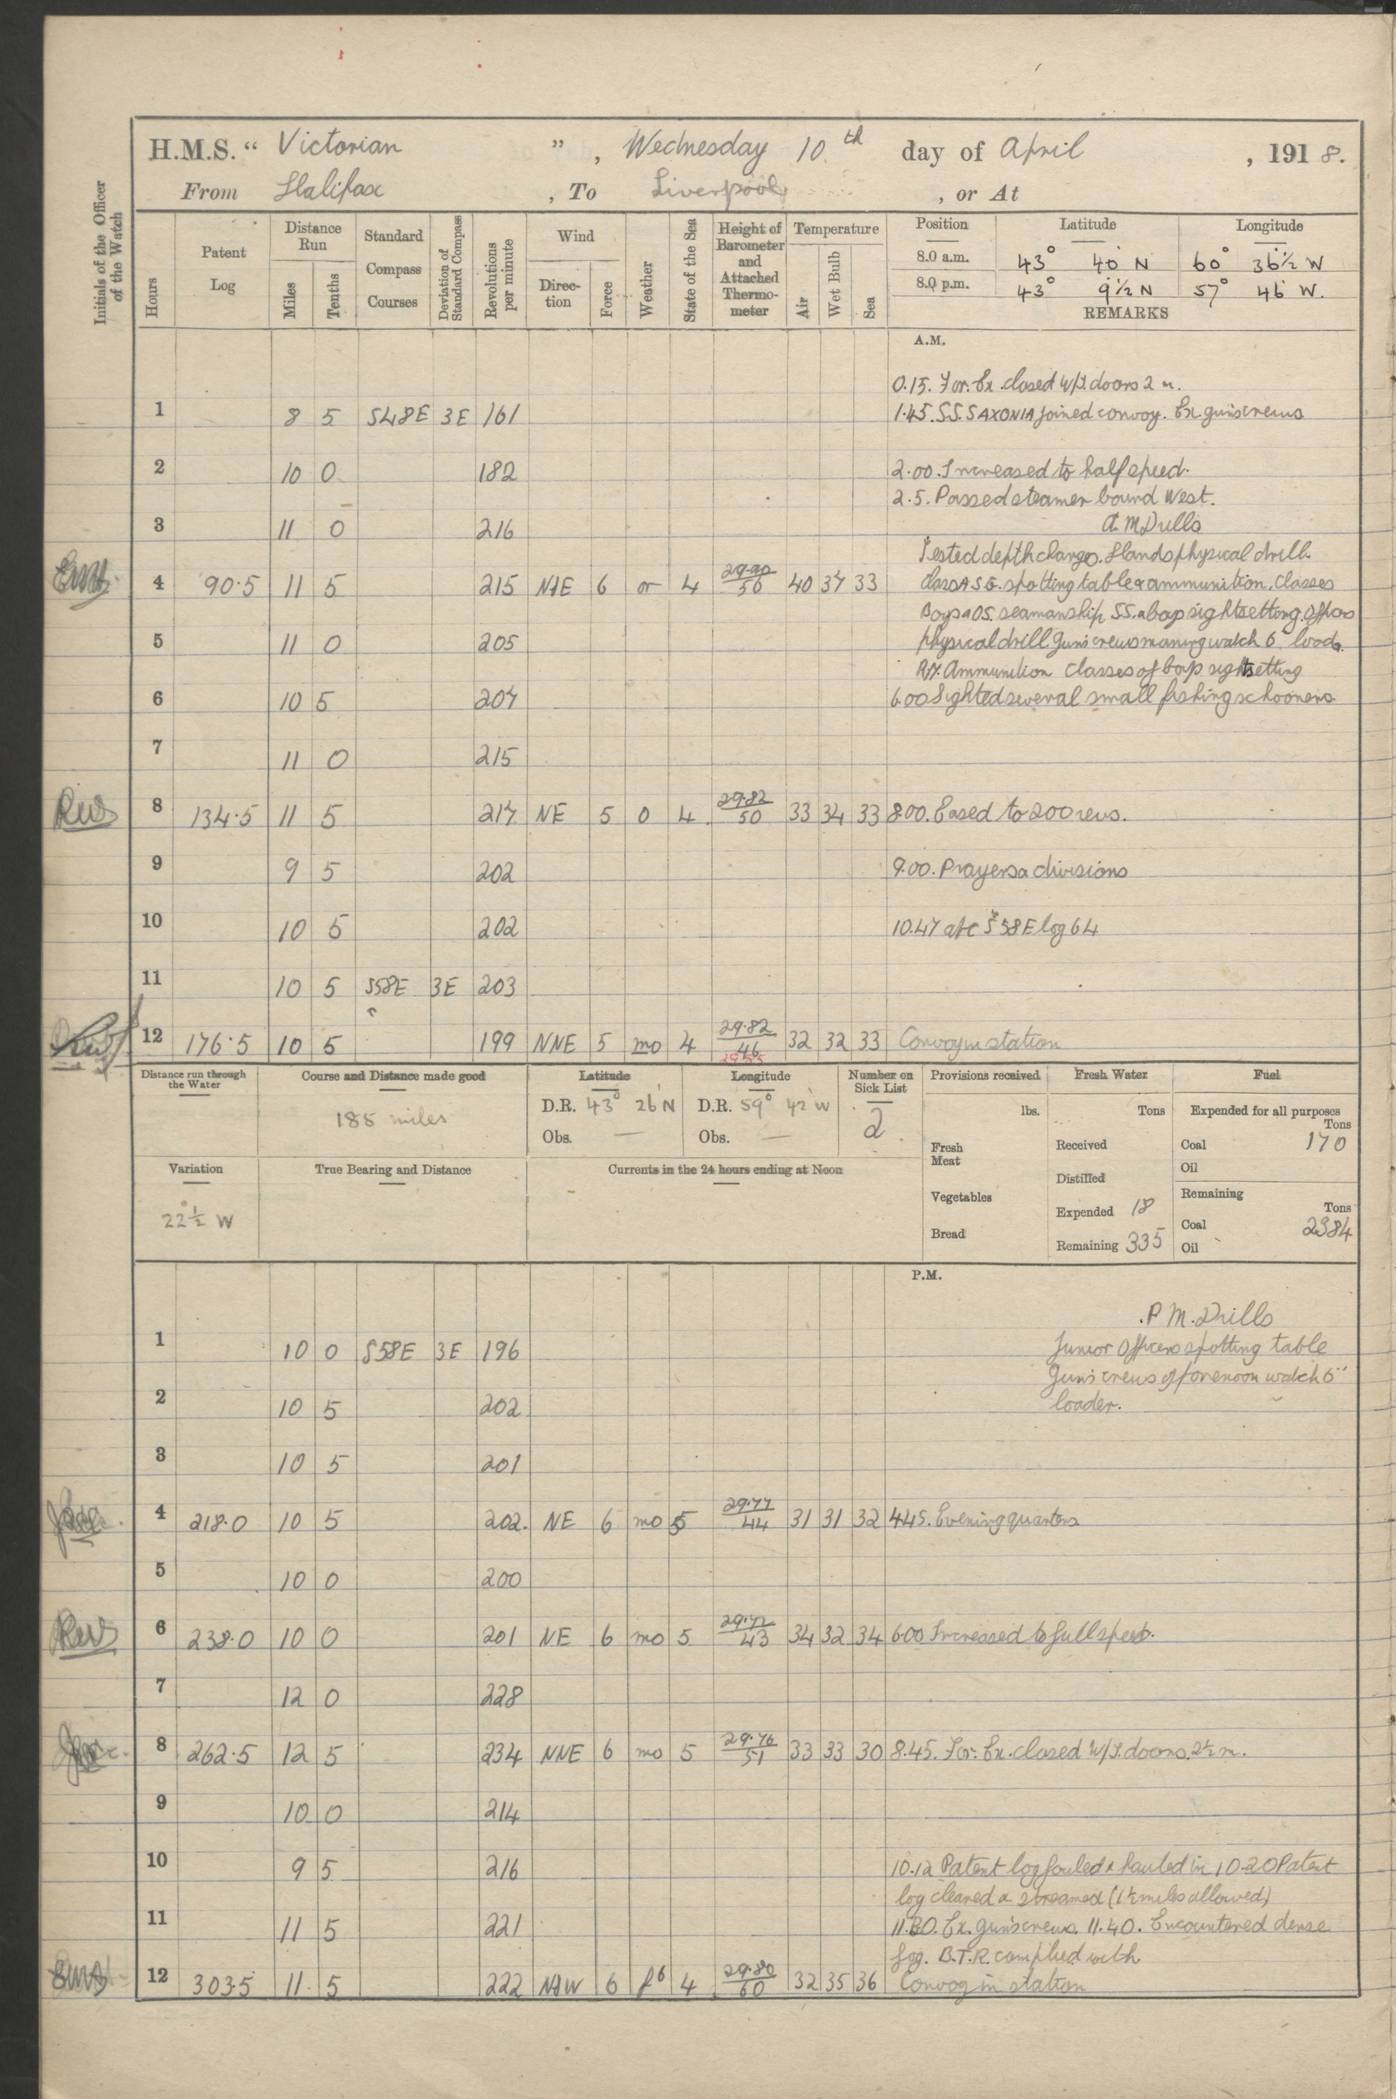 H.M.S. “ Victorian ” , Wednesday 10th day of April , 1918.
From Halifax , To Liverpool , or At
Initials of the Officer of the Watch
Hours
Patent Log
Distance Run
Miles
Tenths
Standard Compass Courses
Deviation of Standard Compass
Revolutions per minute
Wind
Direction
Force
Weather
State of the Sea
Height of Barometer and Attached Thermometer
Temperature
Air
Wet Bulb
Sea
Position Latitude Longitude
8.0 a.m. 43° 40' N 60° 36½' W
8.0 p.m. 43° 9½' N 57° 46' W.
REMARKS
A.M.
0.15. For. Ex. closed W/T. doors 2 m.
1 8 5 S48E 3E 161 1.45. S.S. SAXONIA joined convoy. Ex. guns crews
2 10 0 182 2.00. Increased to half speed.
2.5. Passed steamer bound West.
3 11 0 216 A.M Drills
Tested depth charge. Hands physical drill.
4 90.5 11 5 215 NNE 6 or 4 29.90/56 40 37 33 Class A S.G. spotting table & ammunition. Classes
Boys & OS. seamanship SS. & boys sightsetting. Officers
5 11 0 205 physical drill Guns crews morning watch 6" loader.
R.N. Ammunition Classes of boys sightsetting
6 10 5 207 6.00 Sighted several small fishing schooners
7 11 0 215
8 134.5 11 5 217 NE 5 o 4 29.82/50 33 34 33 8.00. Eased to 200 revs.
9 9 5 202 9.00. Prayers & divisions
10 10 5 202 10.47 a/c S 58 E log 64
11 10 5 S58E 3E 203
12 176.5 10 5 199 NNE 5 mo 4 29.82/46 32 32 33 Convoy in station
Distance run through the Water
Course and Distance made good
185 miles
Latitude
D.R. 43° 26' N
Obs. —
Longitude
D.R. 59° 42' W
Obs. —
Number on Sick List
2
Provisions received
lbs.
Fresh Meat
Vegetables
Bread
Fresh Water
Tons
Received
Distilled
Expended 18
Remaining 335
Fuel
Expended for all purposes
Tons
Coal 170
Oil
Remaining
Tons
Coal 2384
Oil
Variation
22½° W
True Bearing and Distance
Currents in the 24 hours ending at Noon
P.M.
P M. Drills
1 10 0 S58E 3E 196 Junior Officers spotting table
Guns crews of forenoon watch 6"
2 10 5 202 loader.
3 10 5 201
4 218.0 10 5 202. NE 6 mo 5 29.77/44 31 31 32 4.45. Evening quarters
5 10 0 200
6 238.0 10 0 201 NE 6 mo 5 29.72/43 34 32 34 6.00 Increased to full speed.
7 12 0 228
8 262.5 12 5 234 NNE 6 mo 5 29.76/51 33 33 30 8.45. For. Ex. closed W/T. doors. 2½ m.
9 10 0 214
10 9 5 216 10.12 Patent log fouled & hauled in 10.20 Patent
log cleared & streamed (1½ miles allowed)
11 11 5 221 11.30. Ex. guns crews. 11.40. Encountered dense
fog. B.T.R. complied with
12 303.5 11 5 222 NNW 6 f6 4 29.80/60 32 35 36 Convoy in station